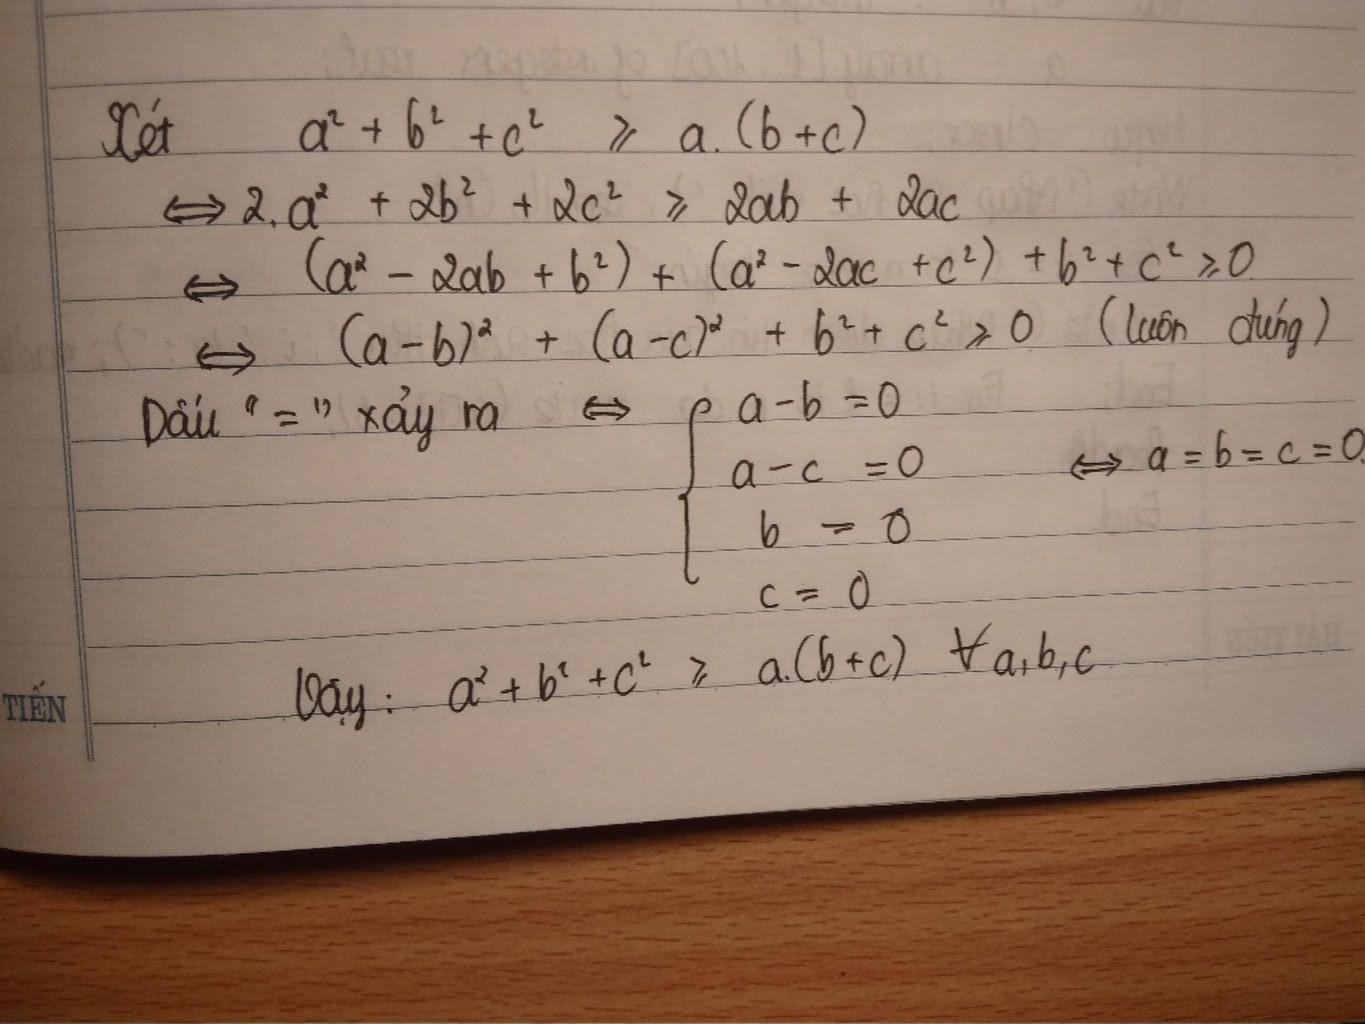 Xét a² + b² + c² ⩾ a.(b+c)
⇔ 2.a² + 2b² + 2c² ⩾ 2ab + 2ac
⇔ (a² - 2ab + b²) + (a² - 2ac + c²) + b² + c² ⩾ 0
⇔ (a-b)² + (a-c)² + b² + c² ⩾ 0 (luôn đúng)
Dấu "=" xảy ra ⇔ { a-b = 0
a-c = 0 ⇔ a = b = c = 0.
b = 0
c = 0
Vậy: a² + b² + c² ⩾ a.(b+c) ∀ a,b,c
TIẾN